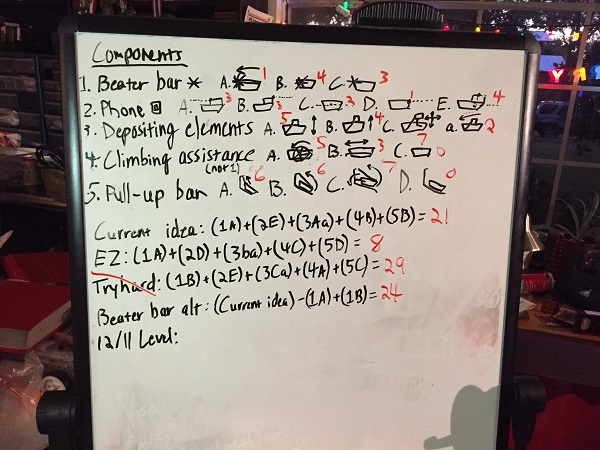 Components
1. Beater bar A. 1 B. 4 C. 3
2. Phone A. 3 B. 3 C. 3 D. 1 E. 4
3. Depositing elements A. 5 B. 4 C. 7 a. 2
4. Climbing assistance (not 1) A. 5 B. 3 C. 0
5. Pull-up bar A. 6 B. 6 C. 7 D. 0
Current idea: (1A)+(2E)+(3Aa)+(4B)+(5B)=21
EZ: (1A)+(2D)+(3ba)+(4C)+(5D)=8
Tryhard: (1B)+(2E)+(3Ca)+(4A)+(5C)=29
Beater bar alt: (Current idea)-(1A)+(1B)=24
12/11 Level: